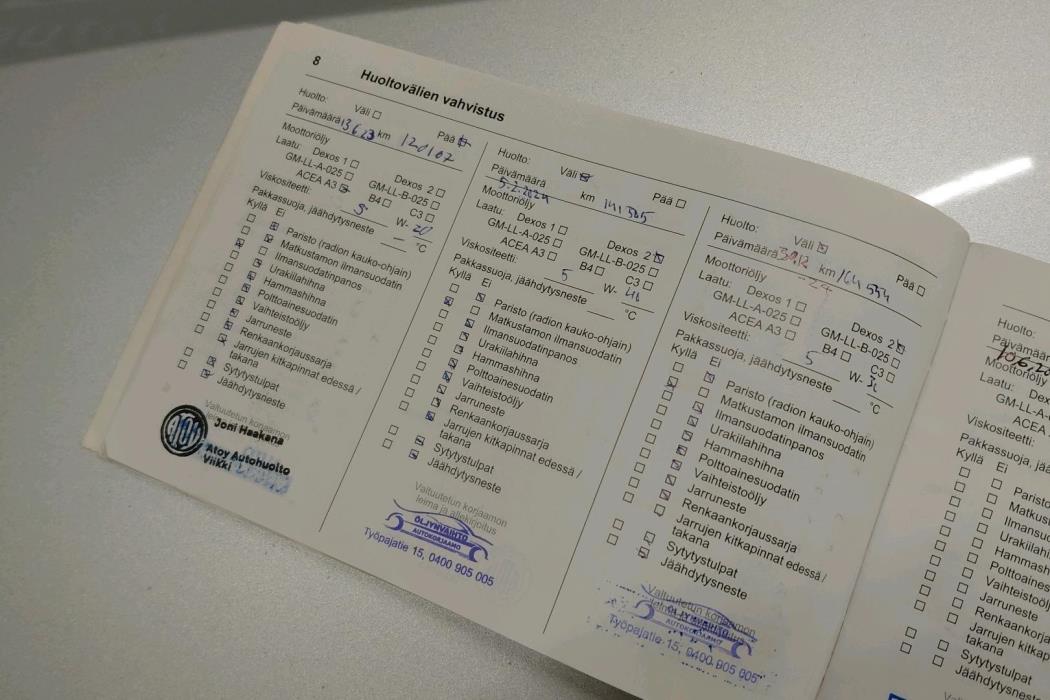 8
Huoltovälien vahvistus
Huolto: Väli Pää
Päivämäärä 13.6.23 km 120102
Moottoriöljy
Laatu: Dexos 1 Dexos 2
GM-LL-A-025 GM-LL-B-025
ACEA A3 B4 C3
Viskositeetti: 5 W- 20
Pakkassuoja, jäähdytysneste — °C
Kyllä Ei
Paristo (radion kauko-ohjain)
Matkustamon ilmansuodatin
Ilmansuodatinpanos
Urakiilahihna
Hammashihna
Polttoainesuodatin
Vaihteistoöljy
Jarruneste
Renkaankorjaussarja
Jarrujen kitkapinnat edessä /
takana
Sytytystulpat
Jäähdytysneste
Valtuutetun korjaamon
Joni Haakana
Atoy Autohuolto
Viikki
Huolto: Väli Pää
Päivämäärä 5.2.2024 km
Moottoriöljy
Laatu: Dexos 1 Dexos 2
GM-LL-A-025 GM-LL-B-025
ACEA A3 B4 C3
Viskositeetti: 5 W-
Pakkassuoja, jäähdytysneste °C
Kyllä Ei
Paristo (radion kauko-ohjain)
Matkustamon ilmansuodatin
Ilmansuodatinpanos
Urakiilahihna
Hammashihna
Polttoainesuodatin
Vaihteistoöljy
Jarruneste
Renkaankorjaussarja
Jarrujen kitkapinnat edessä /
takana
Sytytystulpat
Jäähdytysneste
Valtuutetun korjaamon
leima ja allekirjoitus
ÖLJYNVAIHTO
AUTOKORJAAMO
Työpajatie 15, 0400 905 005
Huolto: Väli Pää
Päivämäärä km 164554
Moottoriöljy
Laatu: Dexos 1 Dexos 2
GM-LL-A-025 GM-LL-B-025
ACEA A3 B4 C3
Viskositeetti: 5 W-
Pakkassuoja, jäähdytysneste °C
Kyllä Ei
Paristo (radion kauko-ohjain)
Matkustamon ilmansuodatin
Ilmansuodatinpanos
Urakiilahihna
Hammashihna
Polttoainesuodatin
Vaihteistoöljy
Jarruneste
Renkaankorjaussarja
Jarrujen kitkapinnat edessä /
takana
Sytytystulpat
Jäähdytysneste
Valtuutetun korjaamon
ÖLJYNVAIHTO
AUTOKORJAAMO
Työpajatie 15, 0400 905 005
Huolto:
Päivämäär
Moottoriöljy
Laatu: Dex
GM-LL-A-0
ACEA
Viskositeetti:
Pakkassuoja, jää
Kyllä Ei
Paristo
Matkust
Ilmansu
Urakiila
Hammash
Polttoaine
Vaihteistoölj
Jarruneste
Renkaankorja
Jarrujen kitkap
takana
Sytytystulpat
Jäähdytysnest